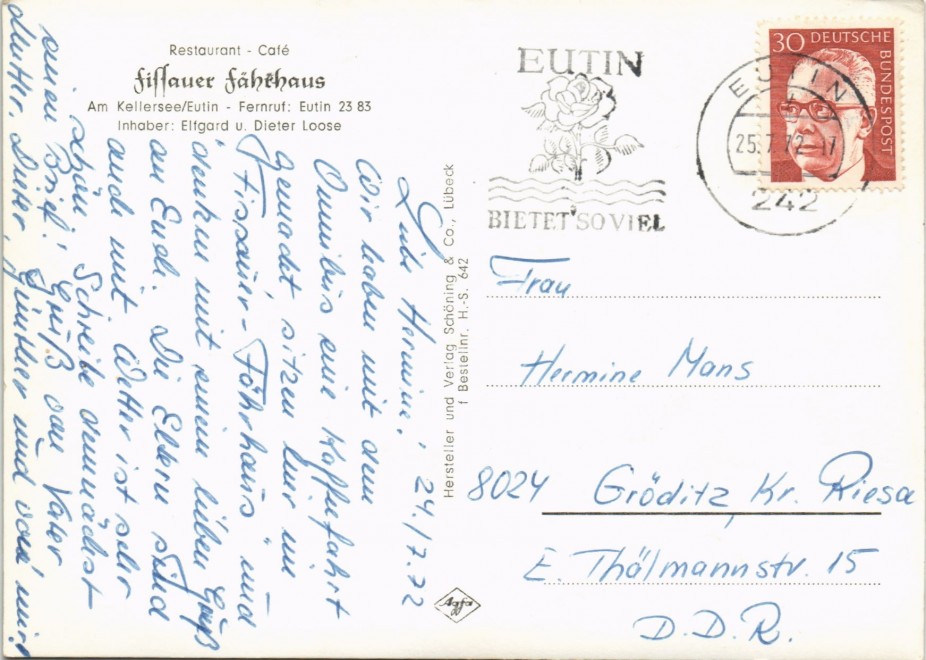 Restaurant - Café
Fissauer Fährhaus
Am Kellersee/Eutin - Fernruf: Eutin 23 83
Inhaber: Elfgard u. Dieter Loose
EUTIN
BIETET SO VIEL
EUTIN
25.7.72.-17
242
30 DEUTSCHE
BUNDESPOST
Liebe Hermine! 24./7.72
Wir haben mit dem
Omnibus eine Kaffeefahrt
gemacht, sitzen hier im
"Fissauer-Fährhaus" und
denken mit einem lieben Gruß
an Euch. Die Eltern sind
auch mit. Wetter ist sehr
schön. Schreibe demnächst
einen Brief! Gruß von Vater
Mutter, Dieter, Günther und von mir!
Hersteller und Verlag Schöning & Co., Lübeck
f Bestellnr. H.-S. 642
Agfa
Frau
Hermine Mans
8024 Gröditz, Kr. Riesa
E. Thälmannstr. 15
D.D.R.